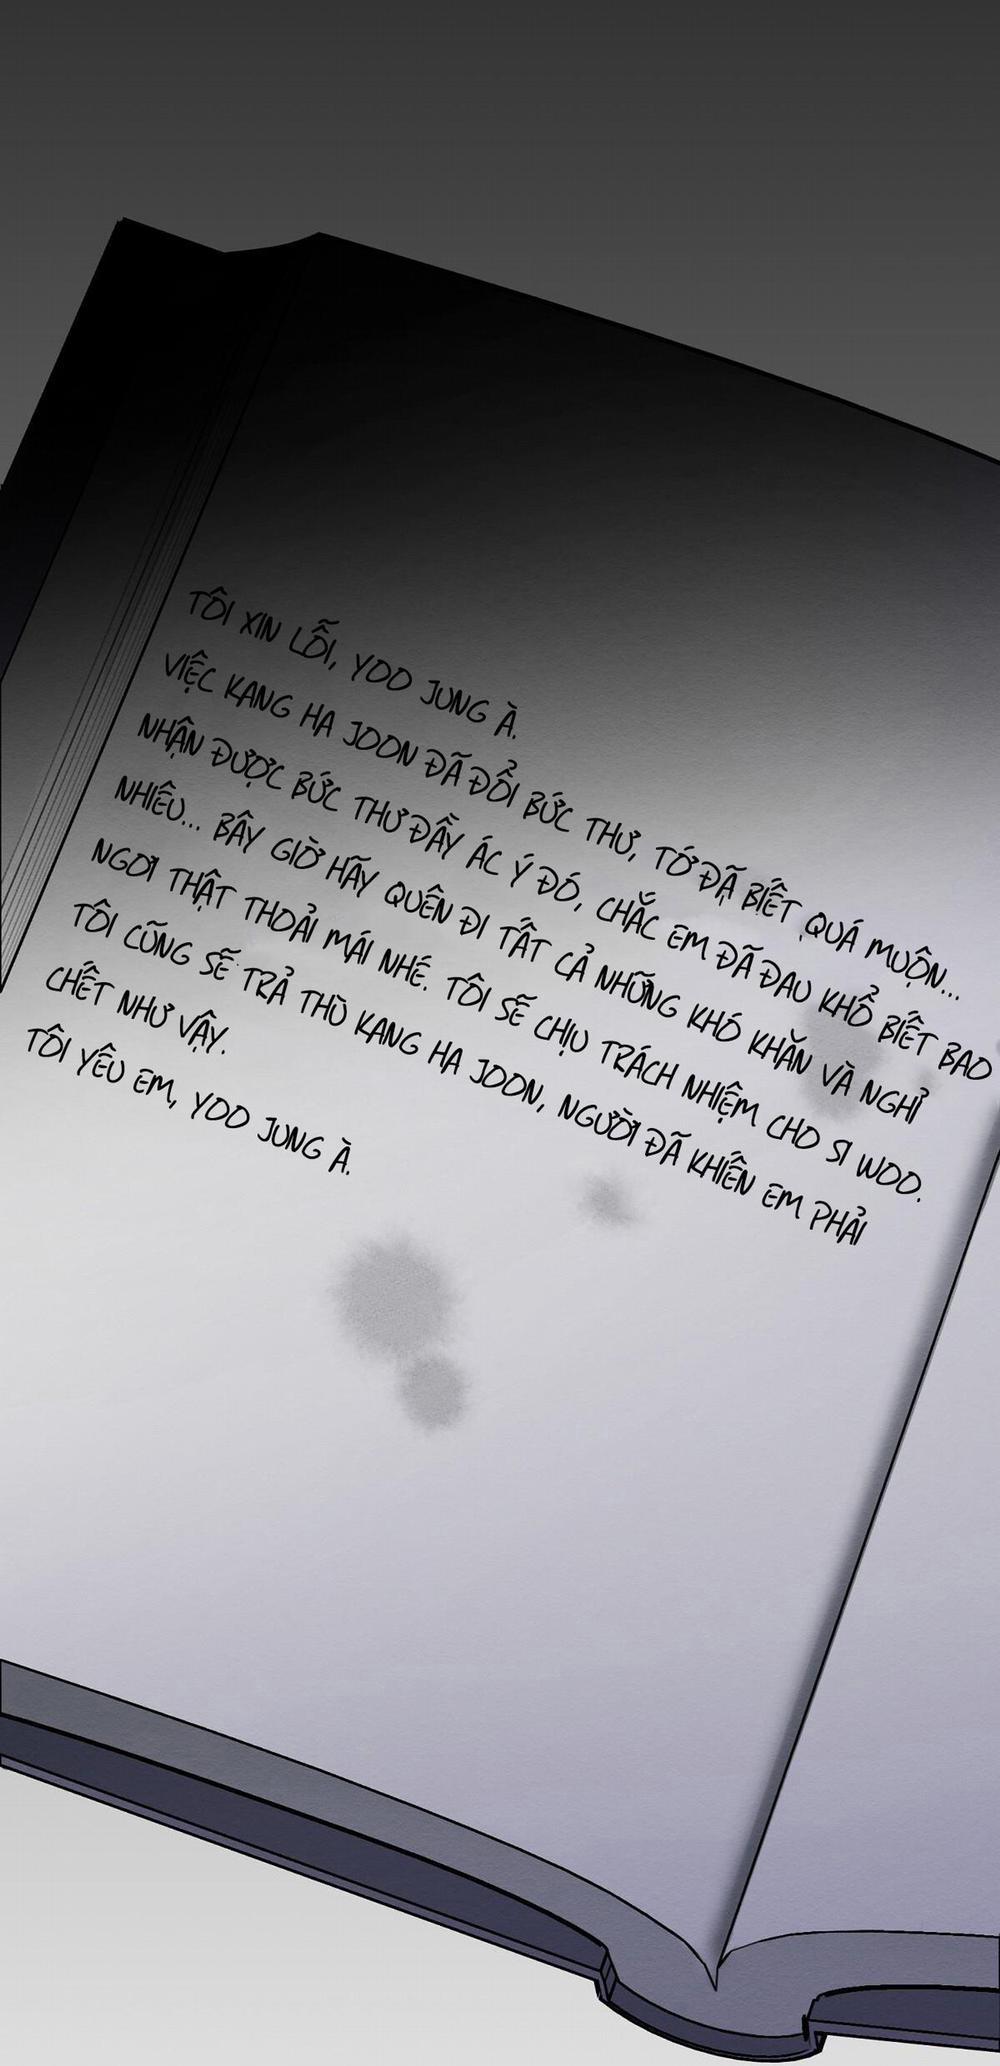 TÔI XIN LỖI, YOO JUNG À.
VIỆC KANG HA JOON ĐÃ ĐỔI BỨC THƯ, TỚ ĐÃ BIẾT QUÁ MUỘN...
NHẬN ĐƯỢC BỨC THƯ ĐẦY ÁC Ý ĐÓ, CHẮC EM ĐÃ ĐAU KHỔ BIẾT BAO
NHIÊU... BÂY GIỜ HÃY QUÊN ĐI TẤT CẢ NHỮNG KHÓ KHĂN VÀ NGHỈ
NGƠI THẬT THOẢI MÁI NHÉ. TÔI SẼ CHỊU TRÁCH NHIỆM CHO SI WOO.
TÔI CŨNG SẼ TRẢ THÙ KANG HA JOON, NGƯỜI ĐÃ KHIẾN EM PHẢI
CHẾT NHƯ VẬY.
TÔI YÊU EM, YOO JUNG À.